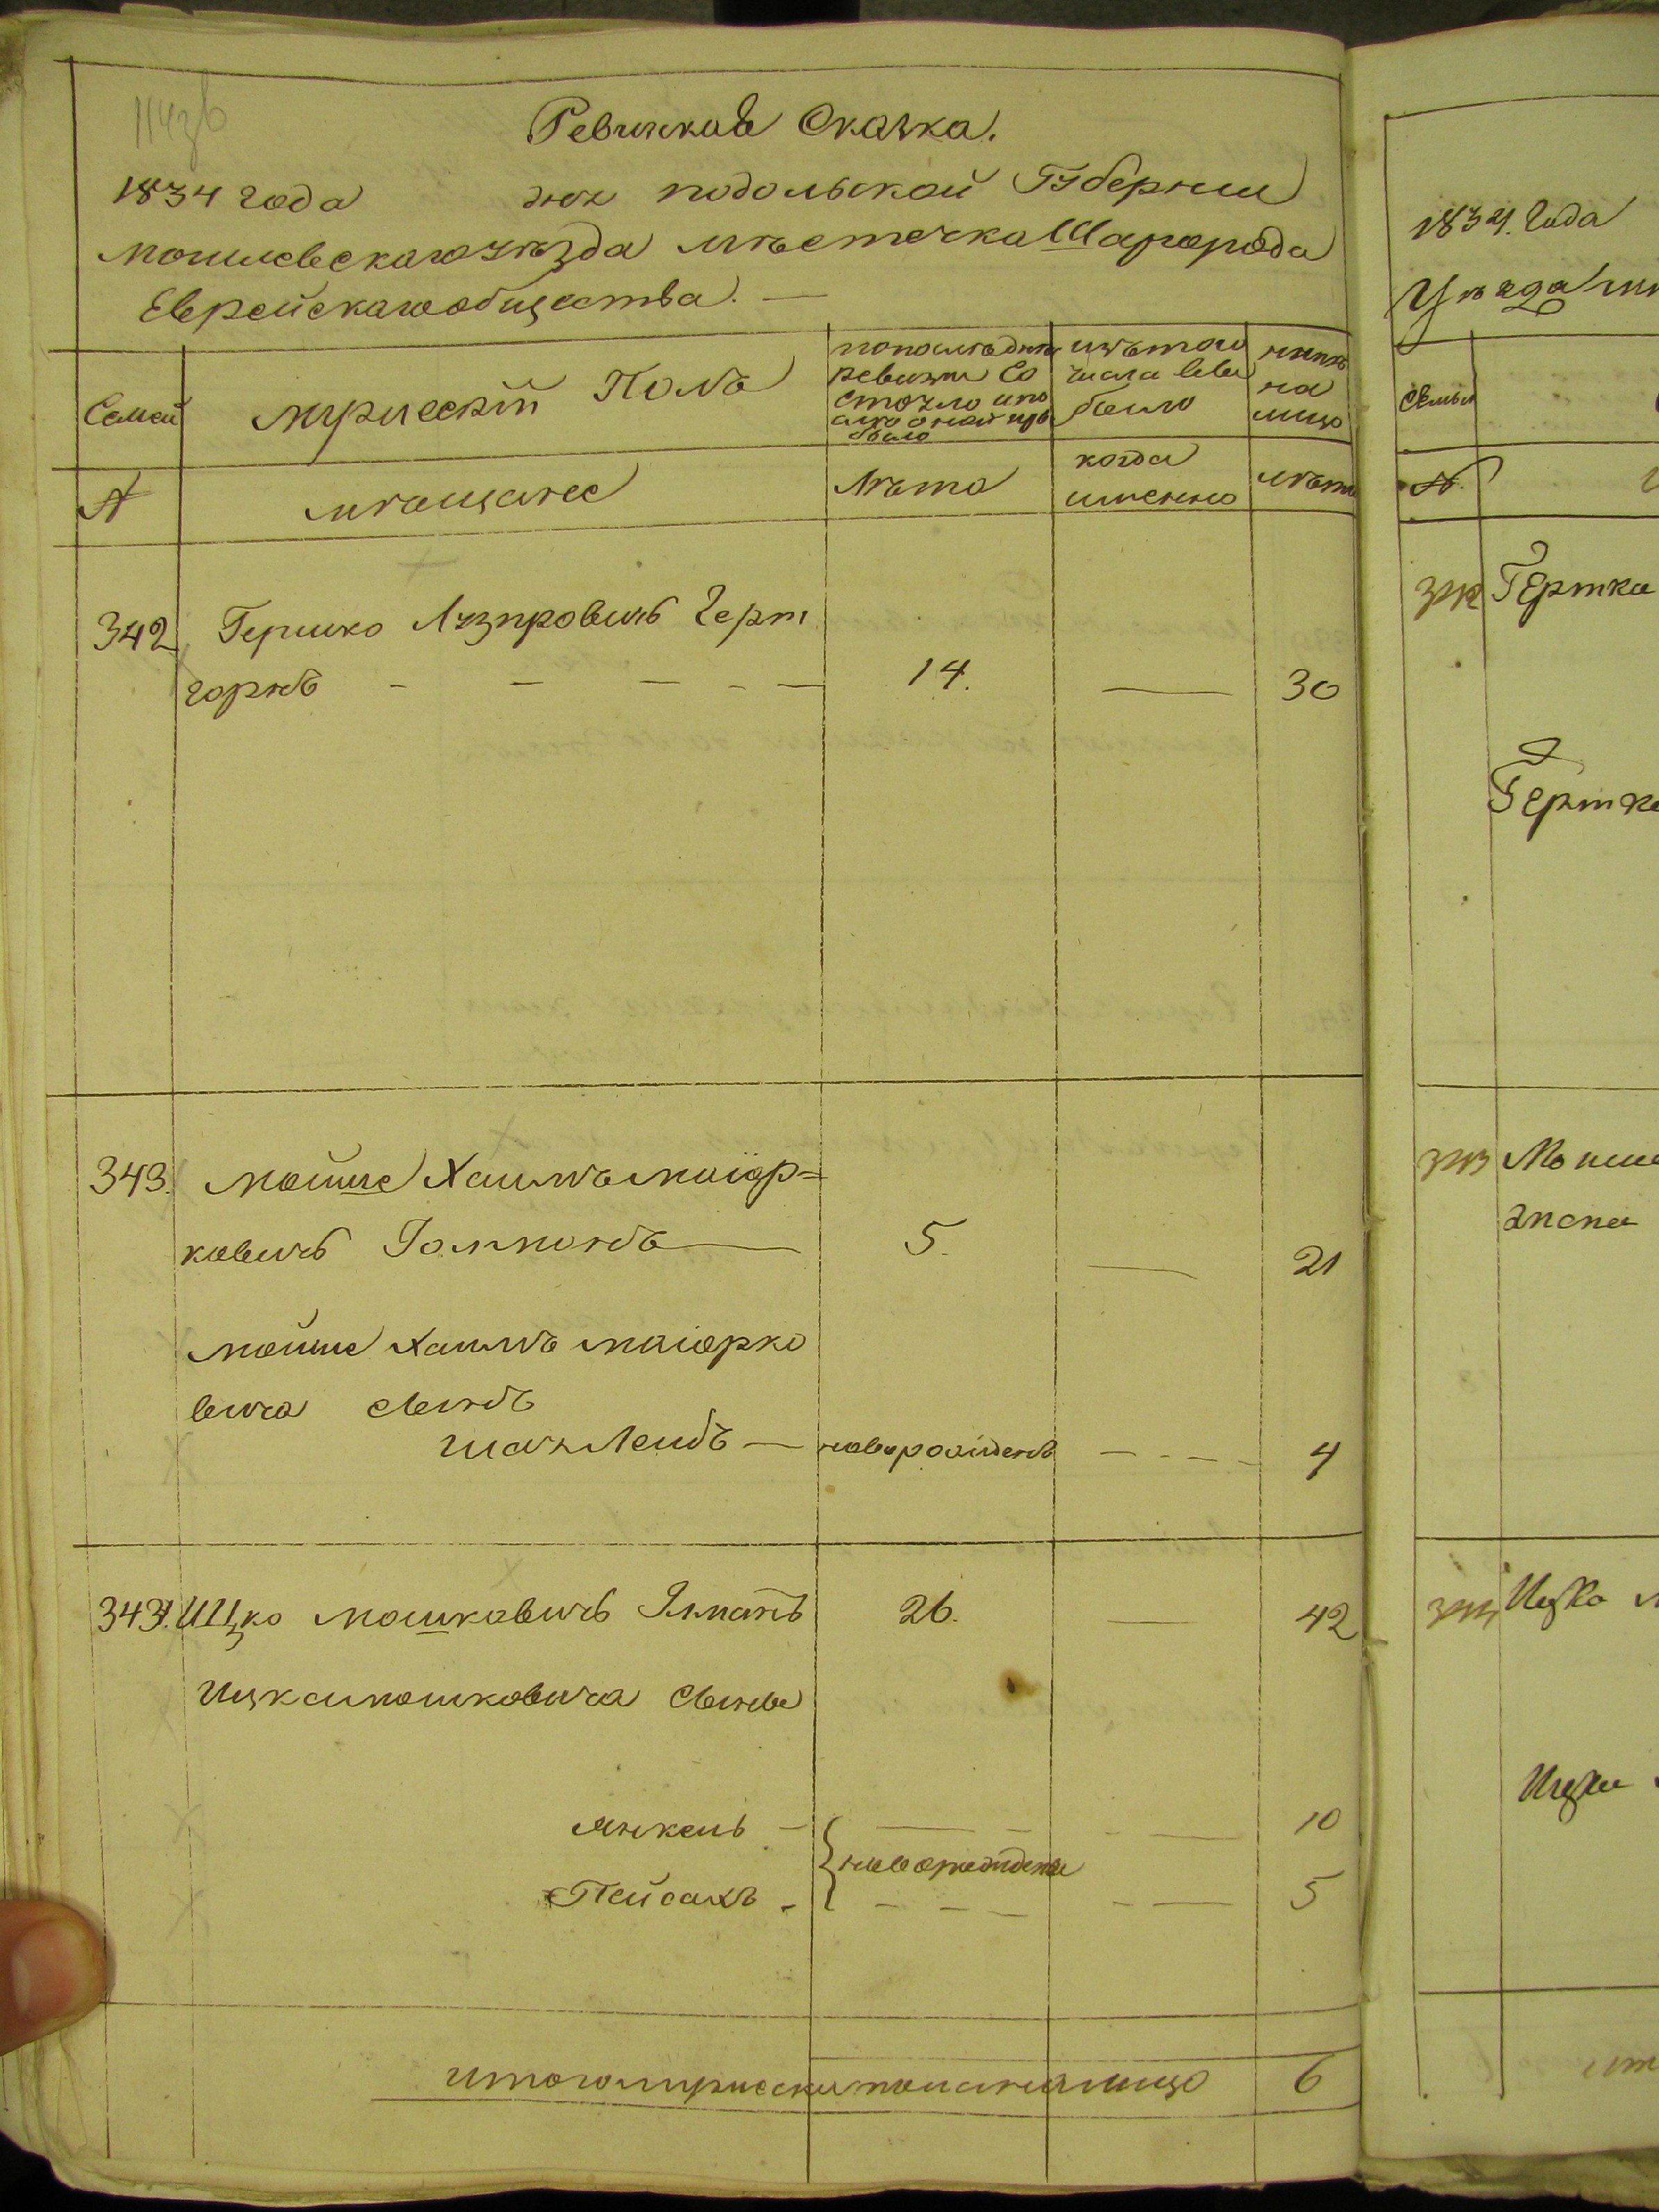 114зв
Ревизкая Сказка.
1834 года дня подольской Губернии
могилевскаго уѣзда мѣстечка Шаргорода
Еврейскаго общества. —
Семьи
мужескій Полъ
по последней
ревизіи Со
стояло и по
было
изъ того
числа выбы
было
нынѣ
на
лицо
№
мѣщане
Лѣта
когда
именно
лѣта
342 Гершко Лузировичъ Герт
горнъ — — — — — 14. — 30
343. Мойше Хаимъ маіор=
ковичъ Голпонъ — 5. — 21
Мойше Хаимъ маіорко
вича сынъ
Шая Лейбъ — новорожденъ — - - - 4
344. Ицко Мошковичъ 26. — 42
Ицка мошковича Сыновья
Янкель — — - - — 10
новорожденые
Пейсахъ - - - - - — 5
итого мужеска пола на лицо 6
1834. Года
Уѣзда
Семьи
№
342 Гертка
Гершка
343 Мойше
344 Ицко
Ицка